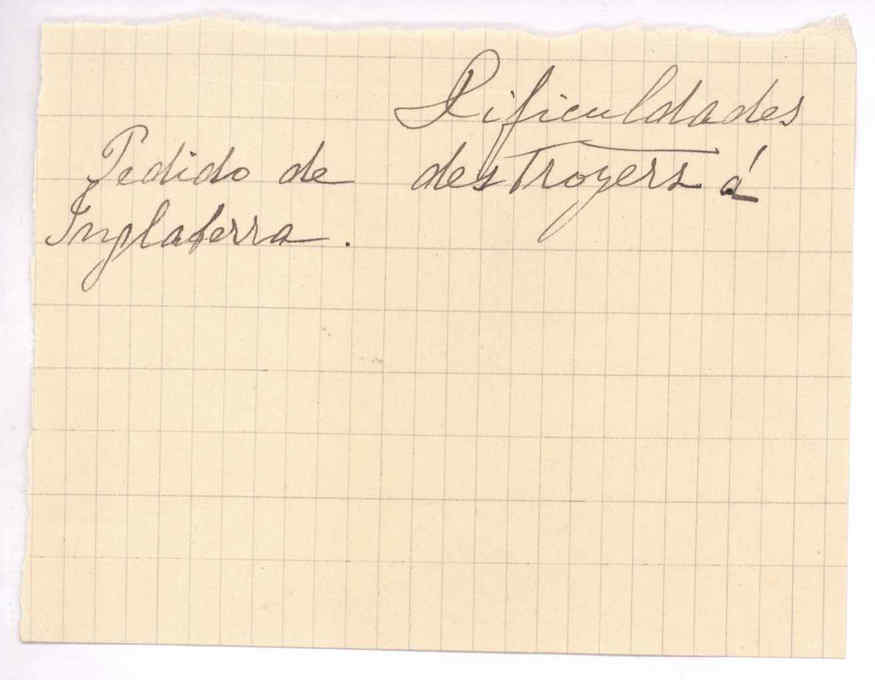 Dificuldades
Pedido de destroyers á
Inglaterra.